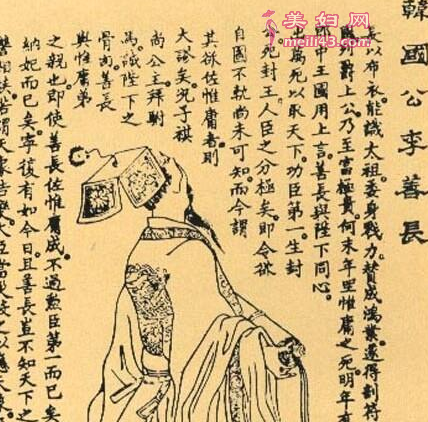 美妇网
meili43.com
韓國公李善長
長以布衣能識太祖。委身戮力。贊成鴻業。遂得剖符
爵上公。乃至富極貴。何末年里惟庸之死。明年有
郎中王國用上言。善長與陛下同心。
出萬死以取天下。功臣第一。生封
死封王。人臣之分極矣。即令欲
自圖不軌。尚未可知。而今謂
其欲佐惟庸者。則
大謬矣。況子祺
尚公主拜駙
馬。誠陛下之
骨肉。善長
與惟庸弟
之親也。即使善長佐惟庸成。不過勲臣第一而已矣
納妃而已矣。寧復有如今日。且善長豈不知天下之